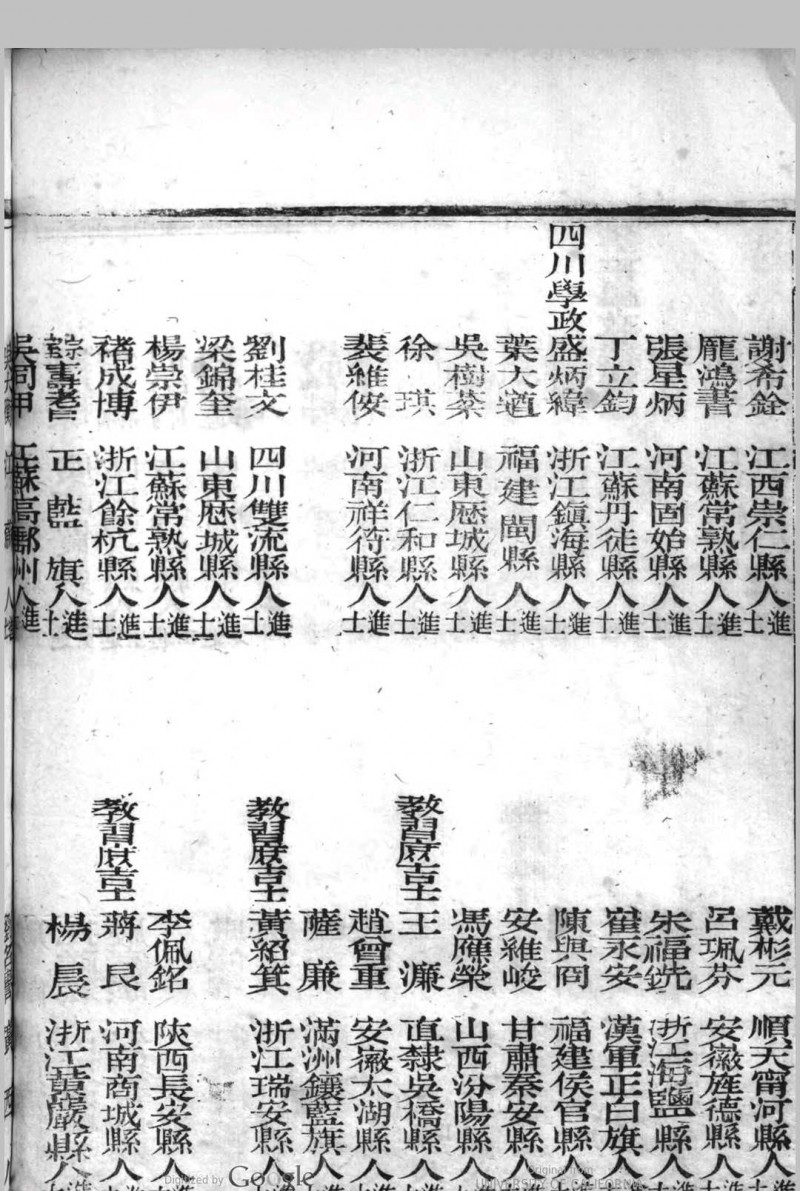 謝希銓 江西崇仁縣人進士
龐鴻書 江蘇常熟縣人進士
張星炳 河南固始縣人進士
丁立鈞 江蘇丹徒縣人進士
四川學政盛炳緯 浙江鎮海縣人進士
葉大遒 福建閩縣人進士
吳樹棻 山東歷城縣人進士
徐琪 浙江仁和縣人進士
裴維侒 河南祥符縣人進士
劉桂文 四川雙流縣人進士
梁錦奎 山東歷城縣人進士
楊崇伊 江蘇常熟縣人進士
褚成博 浙江餘杭縣人進士
宗室壽耆 正藍旗人進士
吳同甲 江蘇高郵州人進士
戴彬元 順天甯河縣人
呂珮芬 安徽旌德縣人
朱福詵 浙江海鹽縣人
崔永安 漢軍正白旗人
陳與冏 福建侯官縣人
安維峻 甘肅秦安縣人
馮應榮 山西汾陽縣人
教習庶吉士王濂 直隸吳橋縣人
趙曾重 安徽太湖縣人
薩廉 滿洲鑲藍旗人
教習庶吉士黃紹箕 浙江瑞安縣人
李佩銘 陝西長安縣人
教習庶吉士蔣艮 河南商城縣人
楊晨 浙江黃巖縣人
Digitized by Google
Original from
UNIVERSITY OF CALIFORNIA